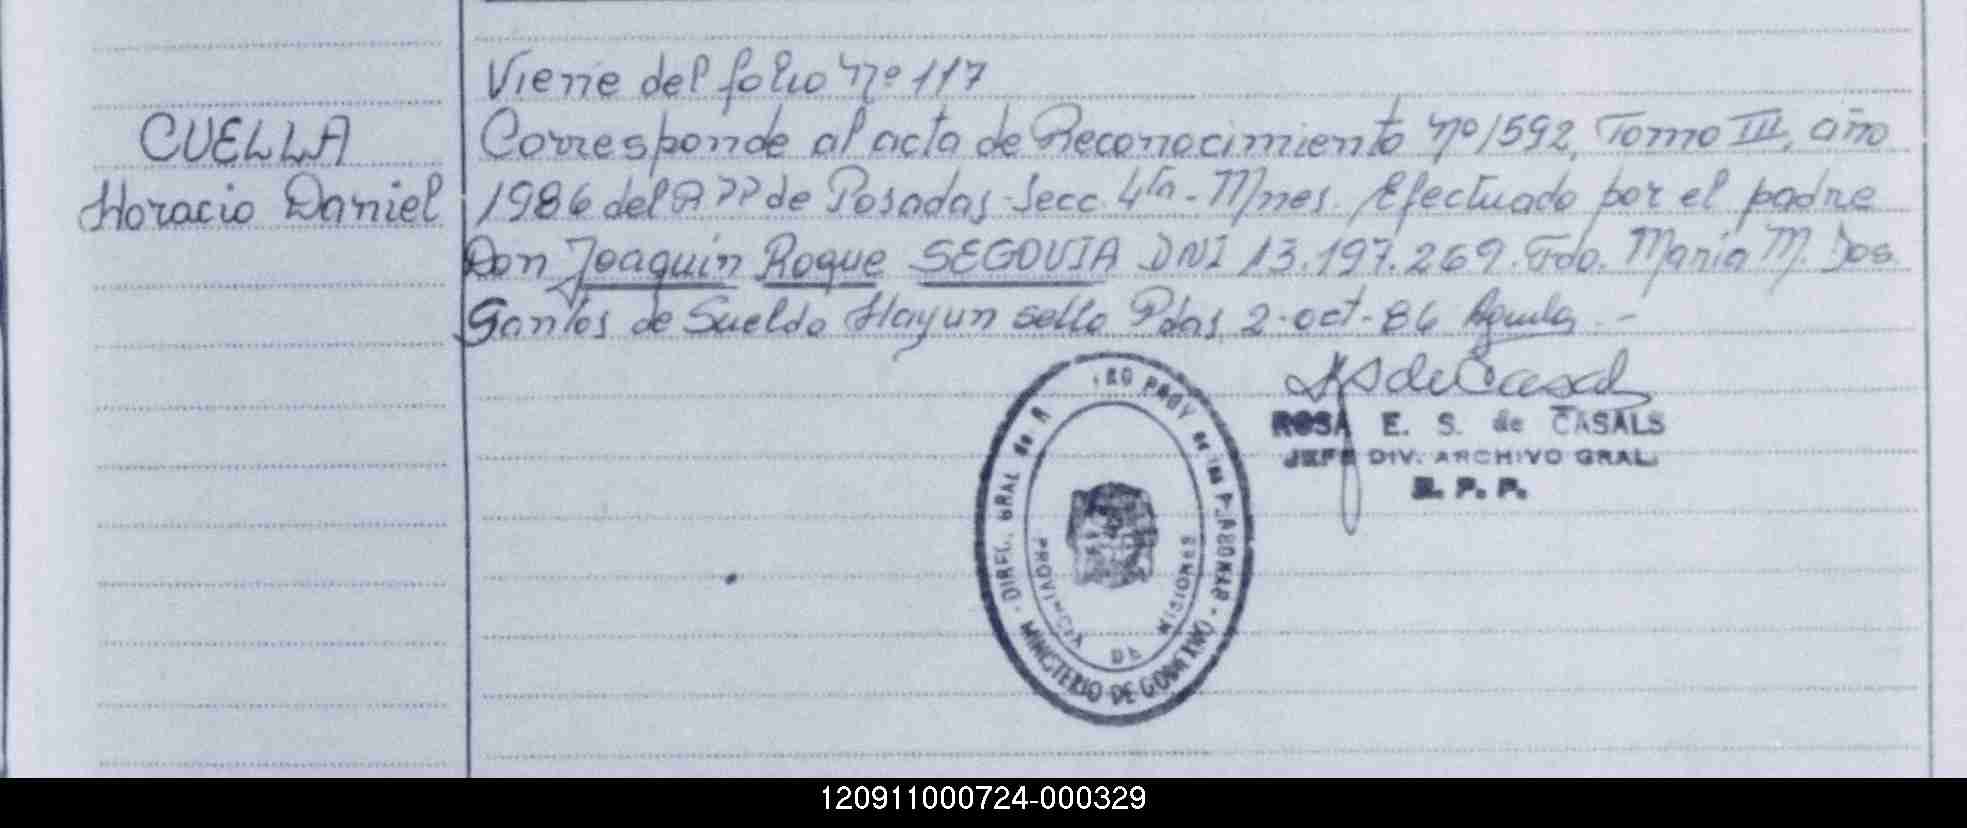 Viene del folio nº 117
CUELLA
Horacio Daniel
Corresponde al acta de Reconocimiento nº 1592, Tomo III, año
1986 del R PP de Posadas Secc. 4ta - Mnes. Efectuado por el padre
Don Joaquin Roque SEGOVIA DNI 13.197.269. Fdo. Maria M. Dos
Santos de Sueldo Hay un sello Pdas, 2-oct-86
ROSA E. S. de CASALS
JEFE DIV. ARCHIVO GRAL.
R. P. P.
DIREC. GRAL de PROV de las PERSONAS
MINISTERIO DE GOBIERNO
PROVINCIA DE MISIONES
120911000724-000329